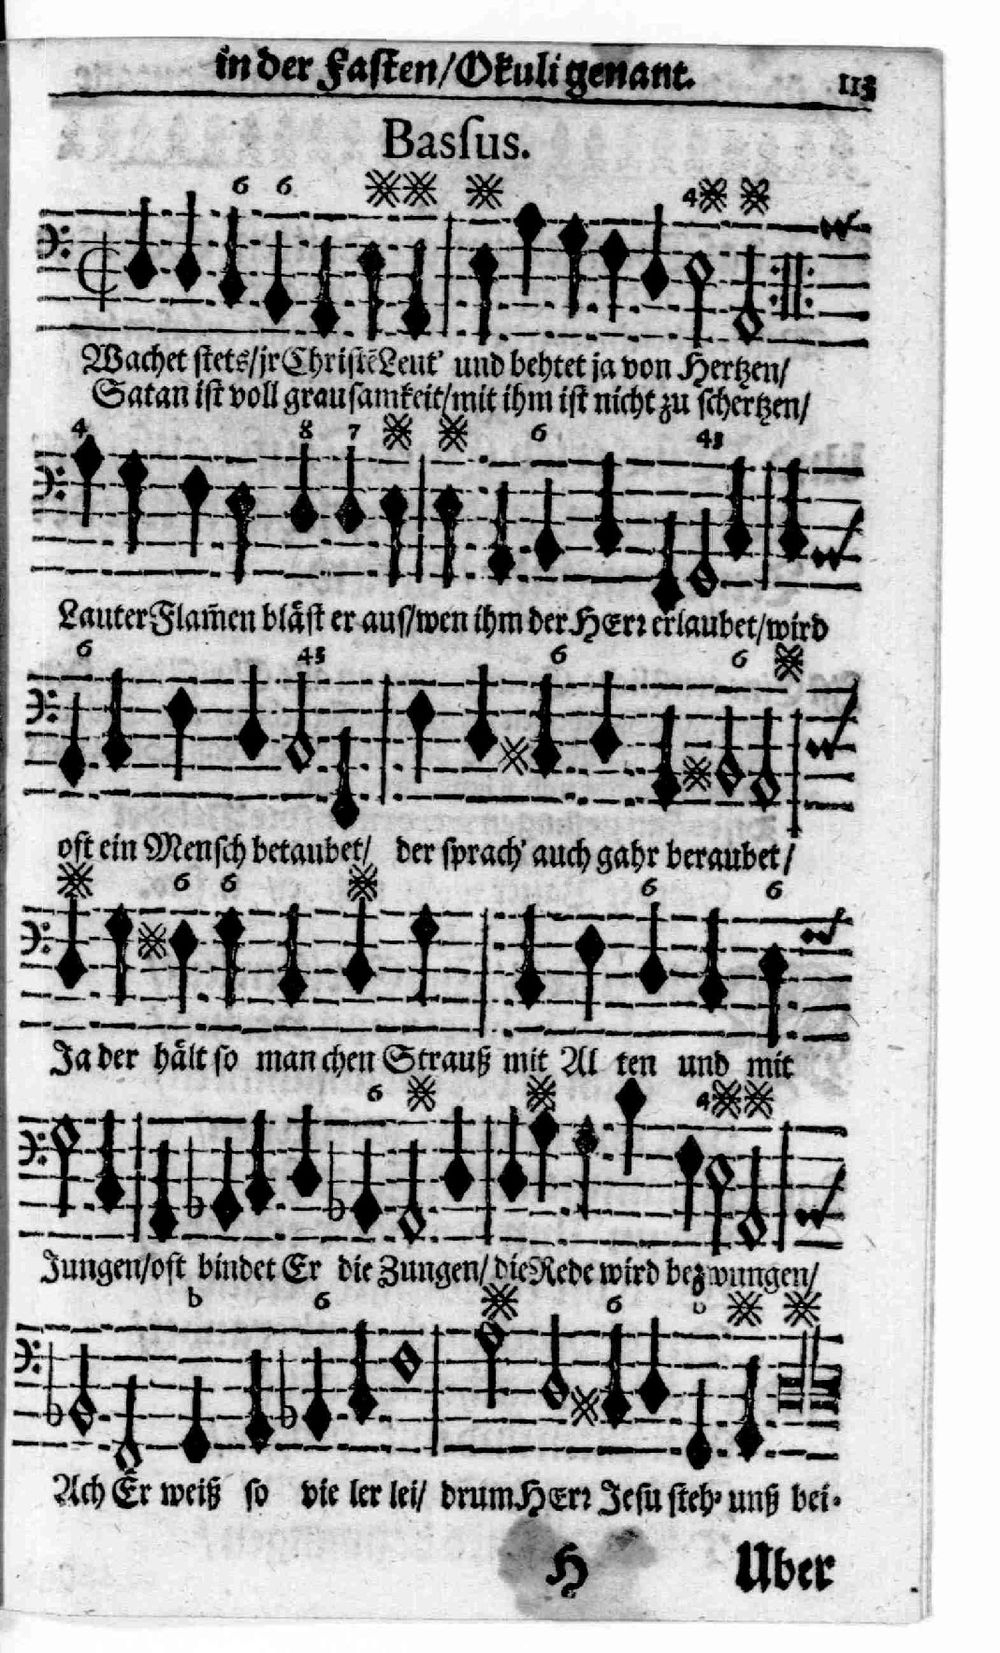 in der Fasten/Okuli genant. 113
Bassus.
6 6 4
Wachet stets/jr Christẽ Leut' und behtet ja von Hertzen/
Satan ist voll grausamkeit/mit ihm ist nicht zu schertzen/
4 8 7 6 43
Lauter Flam̃en bläst er aus/wen ihm der HErr erlaubet/wird
6 43 6 6
oft ein Mensch betaubet/ der sprach' auch gahr beraubet/
6 6 6 6
Ja der hält so man chen Strauß mit Al ten und mit
6 4
Jungen/oft bindet Er die Zungen/die Rede wird bezwungen/
b 6 6 b
Ach Er weiß so vie ler lei/ drum HErr Jesu steh' unß bei.
H Uber